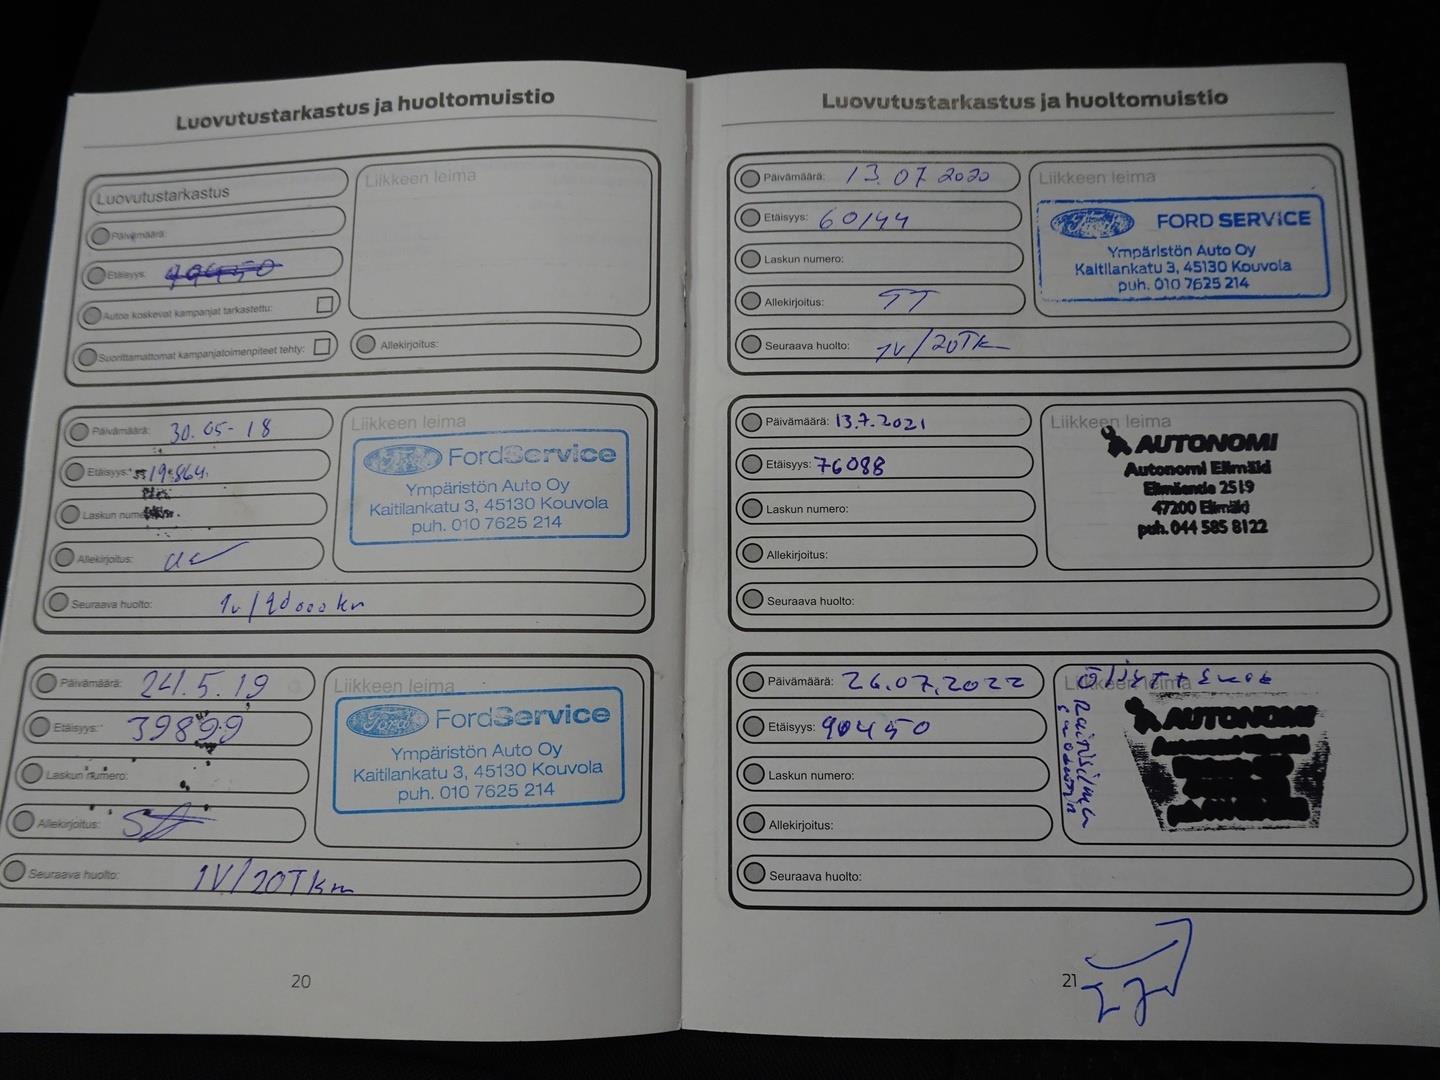 Luovutustarkastus ja huoltomuistio
Luovutustarkastus
Liikkeen leima
Päivämäärä:
Etäisyys:
Autoa koskevat kampanjat tarkastettu:
Suorittamattomat kampanjatoimenpiteet tehty:
Allekirjoitus:
Päivämäärä: 30.05-18
Liikkeen leima
Etäisyys: 19864.
Laskun numero:
Allekirjoitus:
Seuraava huolto: 1v/20000km
Ford FordService
Ympäristön Auto Oy
Kaitilankatu 3, 45130 Kouvola
puh. 010 7625 214
Päivämäärä: 24.5.19
Liikkeen leima
Etäisyys: 39899
Laskun numero:
Allekirjoitus:
Seuraava huolto: 1V/20Tkm
Ford FordService
Ympäristön Auto Oy
Kaitilankatu 3, 45130 Kouvola
puh. 010 7625 214
20
Luovutustarkastus ja huoltomuistio
Päivämäärä: 13.07 2020
Liikkeen leima
Etäisyys: 60144
Laskun numero:
Allekirjoitus: TT
Seuraava huolto: 1V/20Tkm
Ford FORD SERVICE
Ympäristön Auto Oy
Kaitilankatu 3, 45130 Kouvola
puh. 010 7625 214
Päivämäärä: 13.7.2021
Liikkeen leima
Etäisyys: 76088
Laskun numero:
Allekirjoitus:
Seuraava huolto:
AUTONOMI
Autonomi Elimäki
Elimäentie 2519
47200 Elimäki
puh. 044 585 8122
Päivämäärä: 26.07.2022
Liikkeen leima
Etäisyys: 90450
Laskun numero:
Allekirjoitus:
Seuraava huolto:
Öljyt +
Raitisilma
AUTONOMI
21